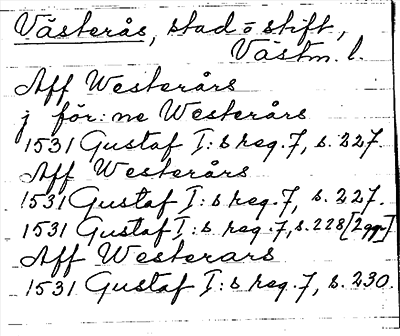 Västerås, stad o stift,
Västm. l.
Aff Westerårs
j för:ne Westerårs
1531 Gustaf I:s reg. 7, s. 227.
Aff Westerårs
1531 Gustaf I:s reg. 7, s. 227.
1531 Gustaf I:s reg. 7, s. 228 [2 ggr]
Aff Westerars
1531 Gustaf I:s reg. 7, s. 230.